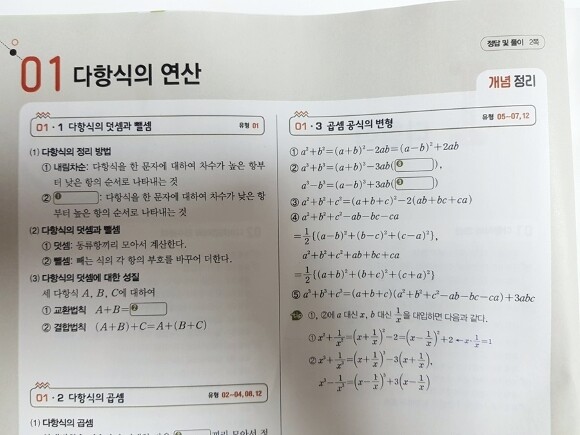 정답 및 풀이 2쪽
01 다항식의 연산
개념 정리
01·1 다항식의 덧셈과 뺄셈 유형 01
(1) 다항식의 정리 방법
① 내림차순: 다항식을 한 문자에 대하여 차수가 높은 항부
터 낮은 항의 순서로 나타내는 것
② ❶ : 다항식을 한 문자에 대하여 차수가 낮은 항
부터 높은 항의 순서로 나타내는 것
(2) 다항식의 덧셈과 뺄셈
① 덧셈: 동류항끼리 모아서 계산한다.
② 뺄셈: 빼는 식의 각 항의 부호를 바꾸어 더한다.
(3) 다항식의 덧셈에 대한 성질
세 다항식 A, B, C에 대하여
① 교환법칙 A+B=❷
② 결합법칙 (A+B)+C=A+(B+C)
01·2 다항식의 곱셈 유형 02-04, 08, 12
(1) 다항식의 곱셈
01·3 곱셈 공식의 변형 유형 05-07, 12
① a²+b²=(a+b)²-2ab=(a-b)²+2ab
② a³+b³=(a+b)³-3ab( ),
a³-b³=(a-b)³+3ab( )
③ a²+b²+c²=(a+b+c)²-2(ab+bc+ca)
④ a²+b²+c²-ab-bc-ca
=1/2{(a-b)²+(b-c)²+(c-a)²},
a²+b²+c²+ab+bc+ca
=1/2{(a+b)²+(b+c)²+(c+a)²}
⑤ a³+b³+c³=(a+b+c)(a²+b²+c²-ab-bc-ca)+3abc
①, ②에 a 대신 x, b 대신 1/x을 대입하면 다음과 같다.
① x²+1/x²=(x+1/x)²-2=(x-1/x)²+2 ← x·1/x=1
② x³+1/x³=(x+1/x)³-3(x+1/x),
x³-1/x³=(x-1/x)³+3(x-1/x)